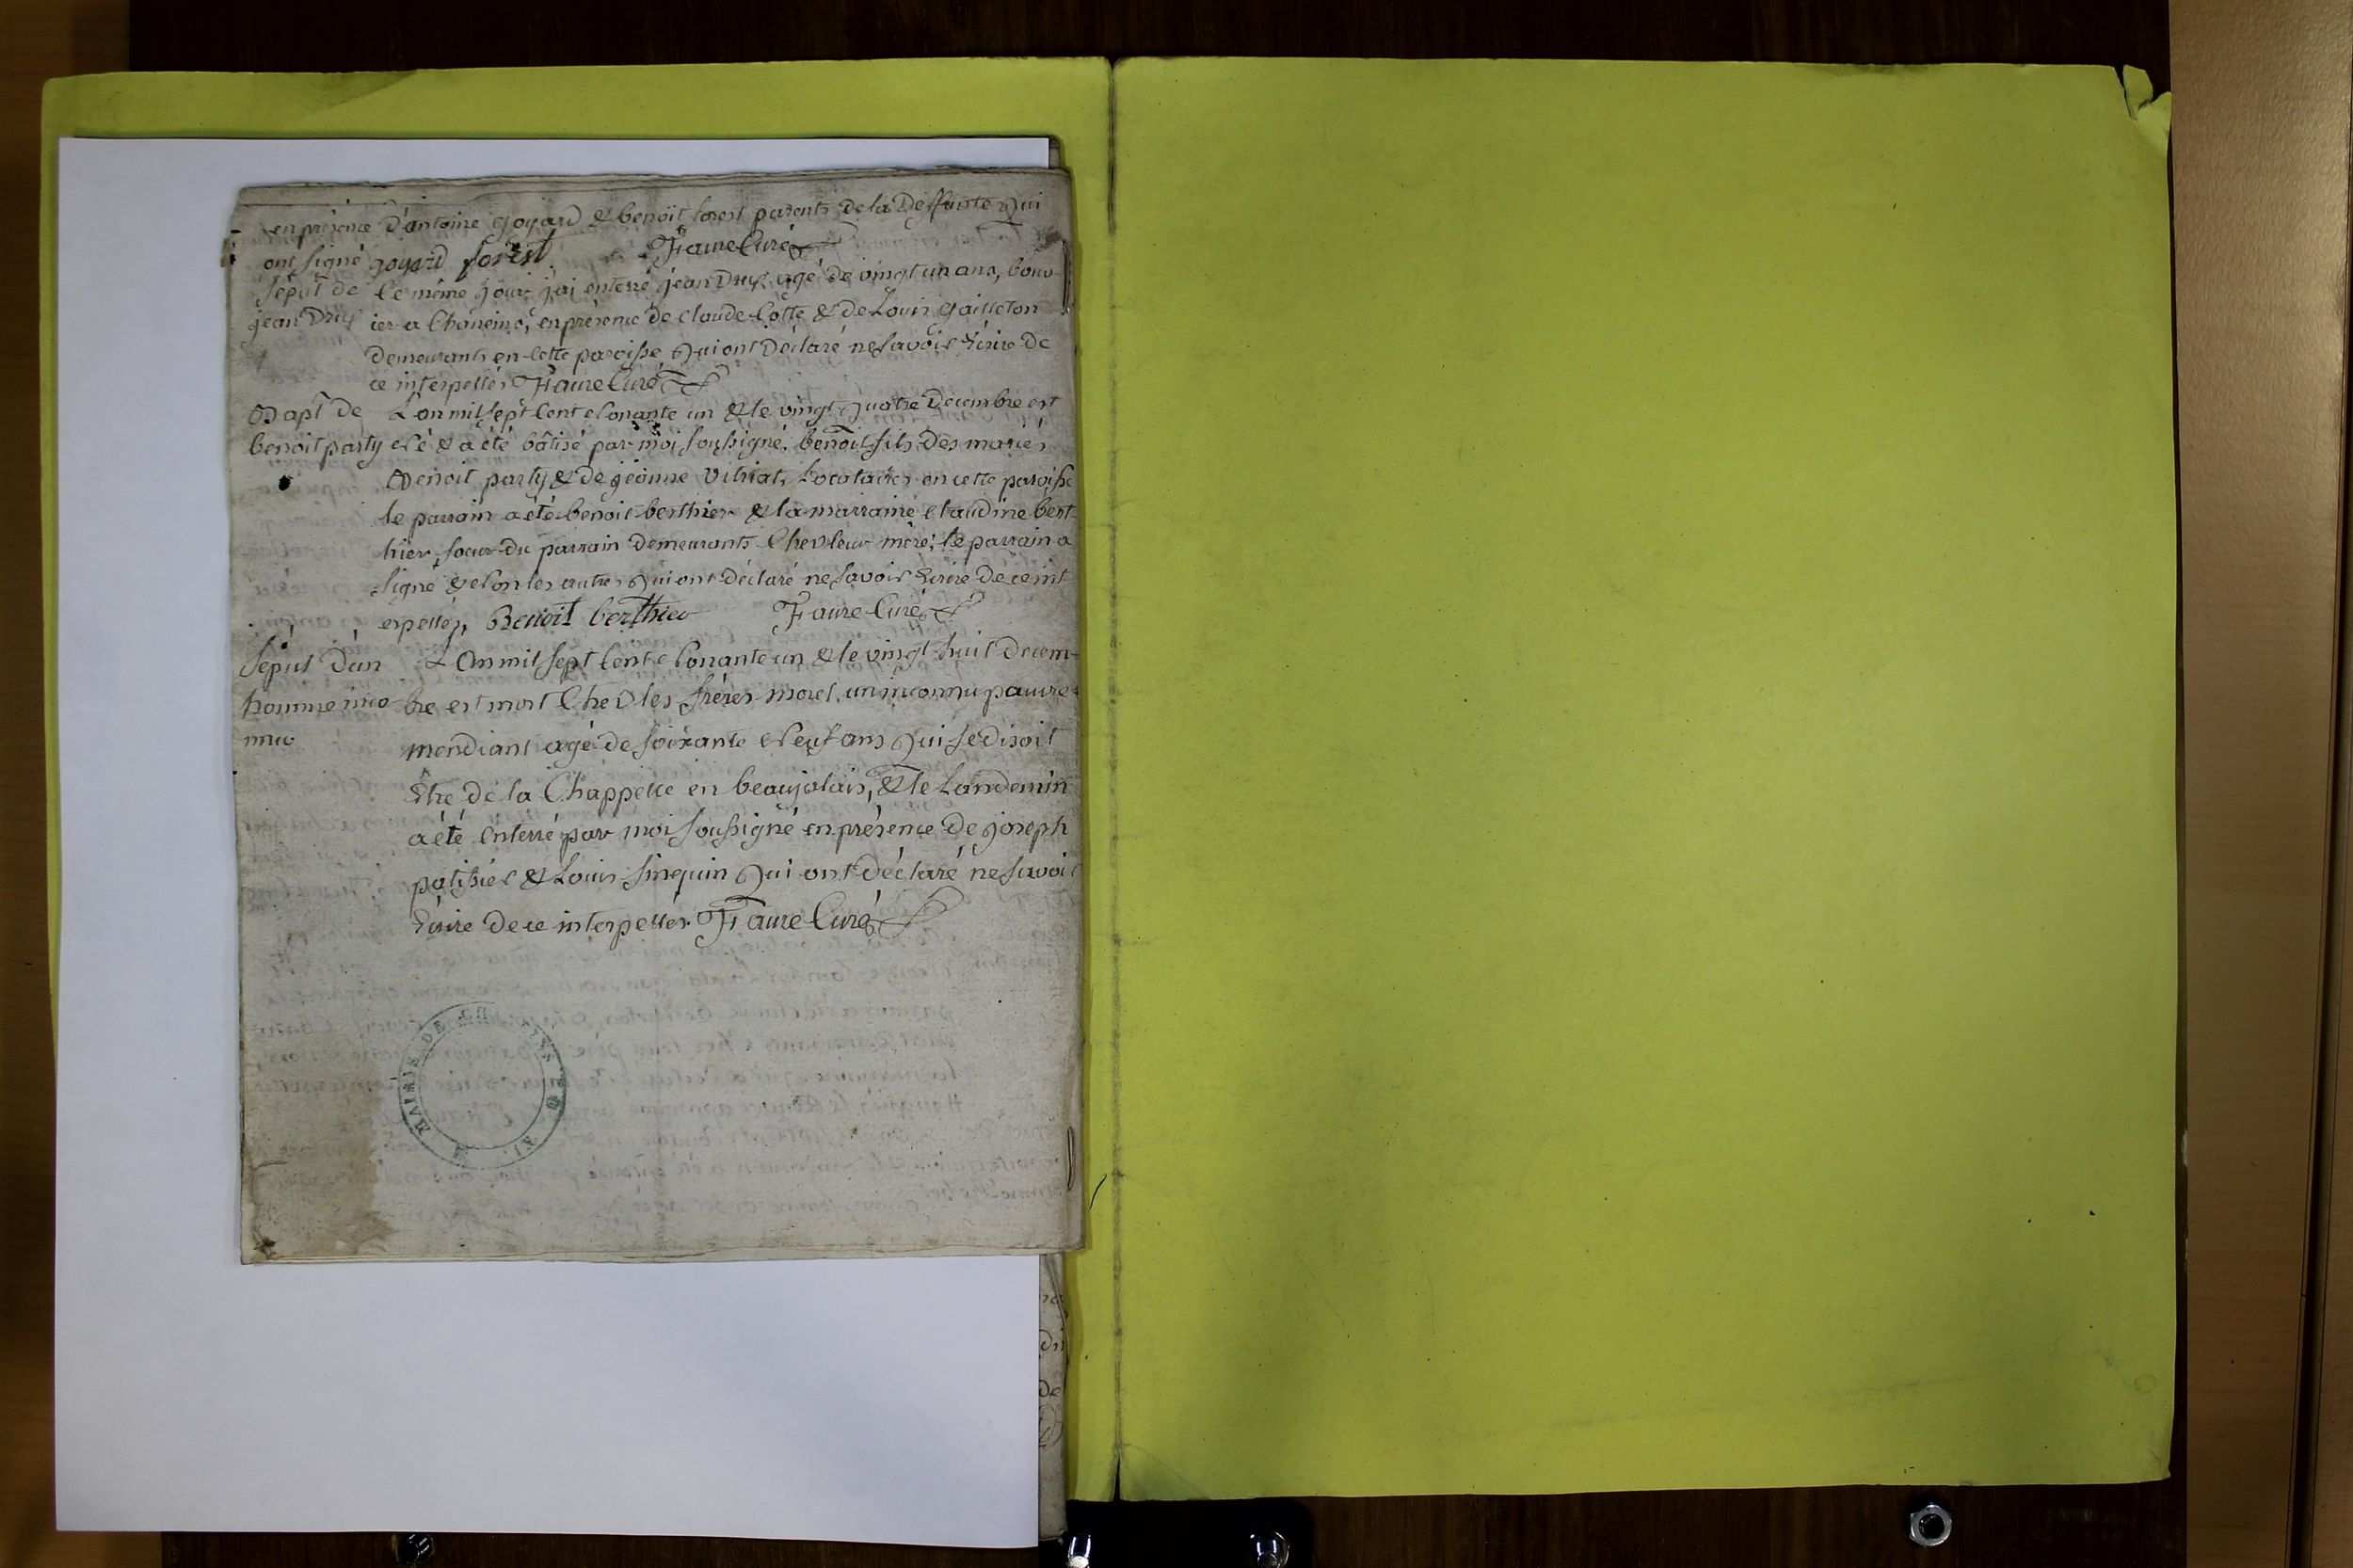 en présence d'antoine goyard & benoit forest parents de la deffunte qui
ont signé goyard forest Faure Curé
sepul de le même jour j'ai enterré jéan Druf agé de vingt un ans, bouv-
jean Druf ier a en présence de claude Cotte & de Louis gailleton
demeurants en cette paroisse qui ont déclaré ne savoir écrire de
ce interpellés Faure Curé
Bapt de L'an mil sept cent nonante un & le vingt quatre decembre est
benoit party né & a été bâtisé par moi soussigné, benoit fils des mariés
Benoit party & de jéanne locataires en cette paroisse
le parrain a été benoit berthier & la marraine claudine bert-
hier soeur du parrain demeurants chez leur mère; le parrain a
signé & non les autres qui ont déclaré ne savoir écrire de ce int
erpellés, Benoit berthier Faure Curé
Sépul d'un L'an mil sept cent nonante un & le vingt huit decem-
homme inco bre est mort chez les frères morel, un inconnu pauvre
nnu mendiant agé de soixante neuf ans qui se disoit
être de la Chappelle en beaujolais, & le Landemin
a été enterré par moi soussigné en présence de joseph
patissier & Louis sinquin qui ont déclaré ne savoir
écrire de ce interpellés Faure Curé
MAIRIE DE